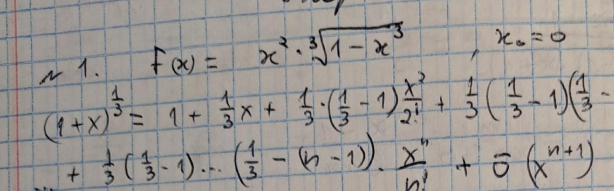 N 1. F(x) = x² · ∛(1 - x³) , x₀ = 0
(1+x)^(1/3) = 1 + 1/3 x + 1/3 · (1/3 - 1) x²/2! + 1/3 (1/3 - 1)(1/3 -
... + 1/3 (1/3 - 1) ... (1/3 - (n - 1)) · xⁿ/n! + ō (xⁿ⁺¹)